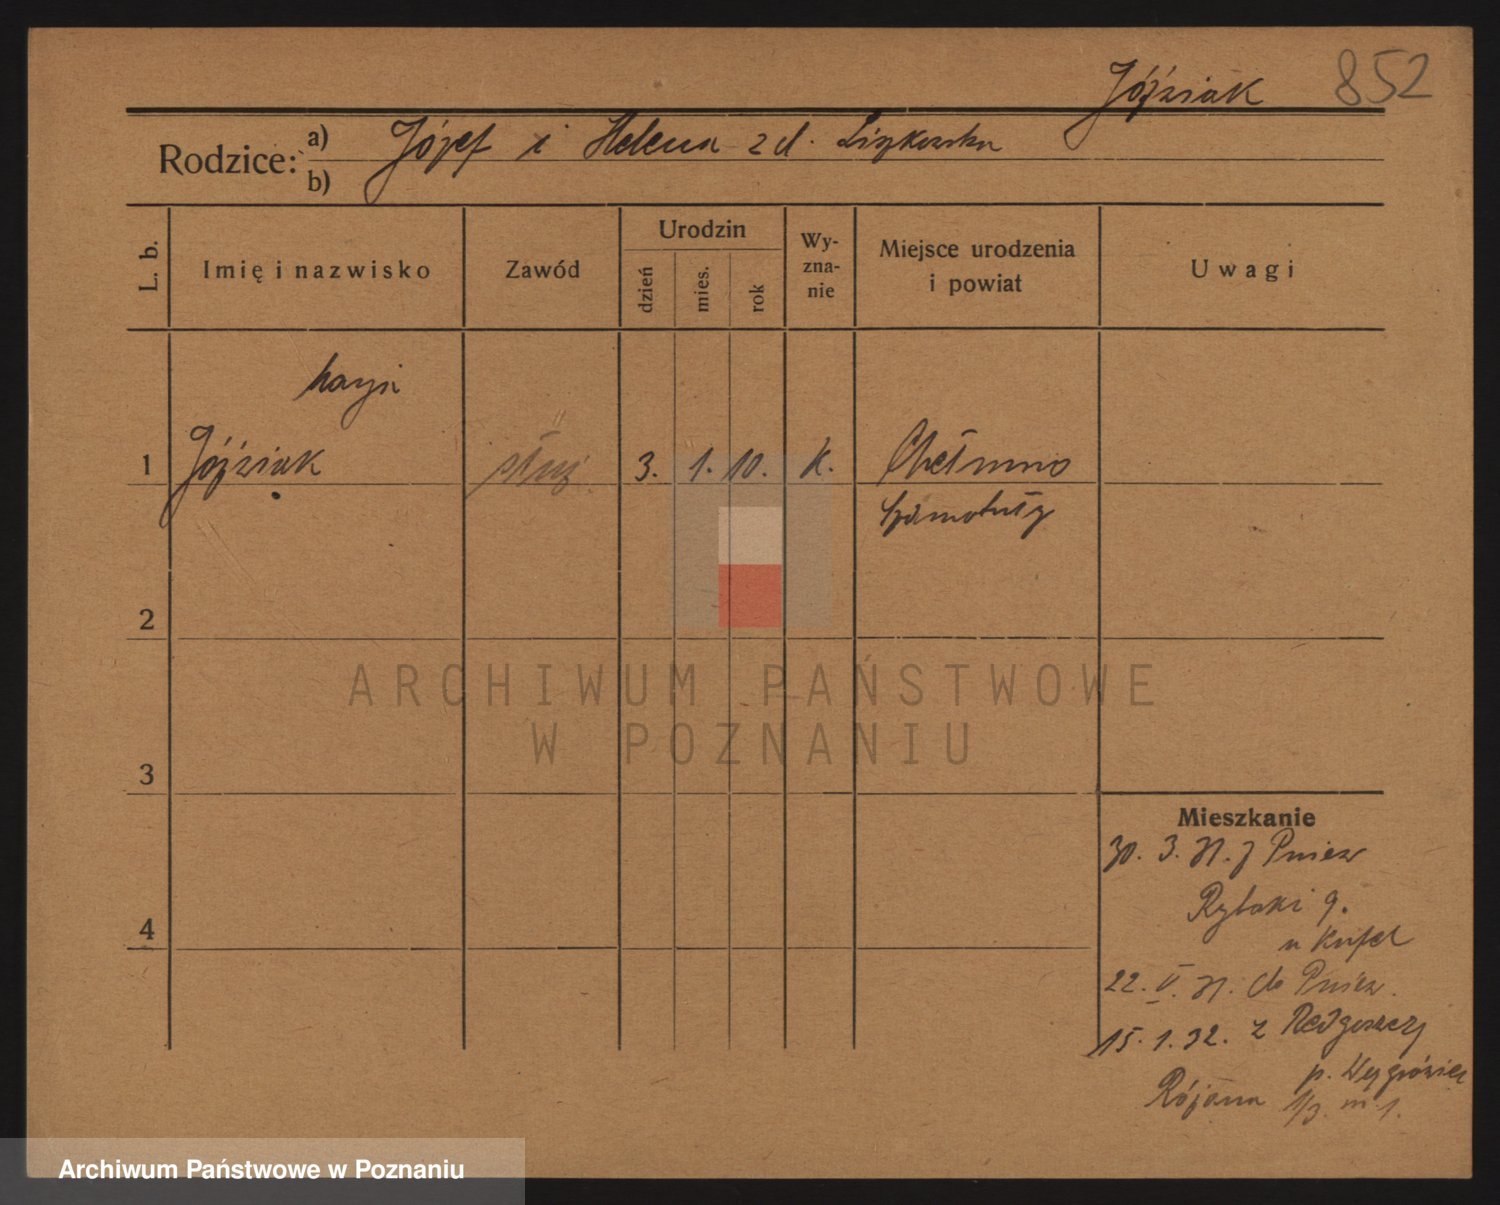 Jóźziak 852
Rodzice: a) Józef i Helena z d.
b)
L. b. Imię i nazwisko Zawód Urodzin dzień mies. rok Wy-zna-nie Miejsce urodzenia i powiat Uwagi
1 Jóźziak służ. 3. 1. 10. k. Chełmno
Szamotuły
2
ARCHIWUM PAŃSTWOWE
W POZNANIU
3
Mieszkanie
30. 3. 31. z Pniew
Rybaki 9.
4
u
22. V. 31. do Pniew.
15. 1. 32. z
p. Wągrówiec
Różana 1/3 m. 1.
Archiwum Państwowe w Poznaniu